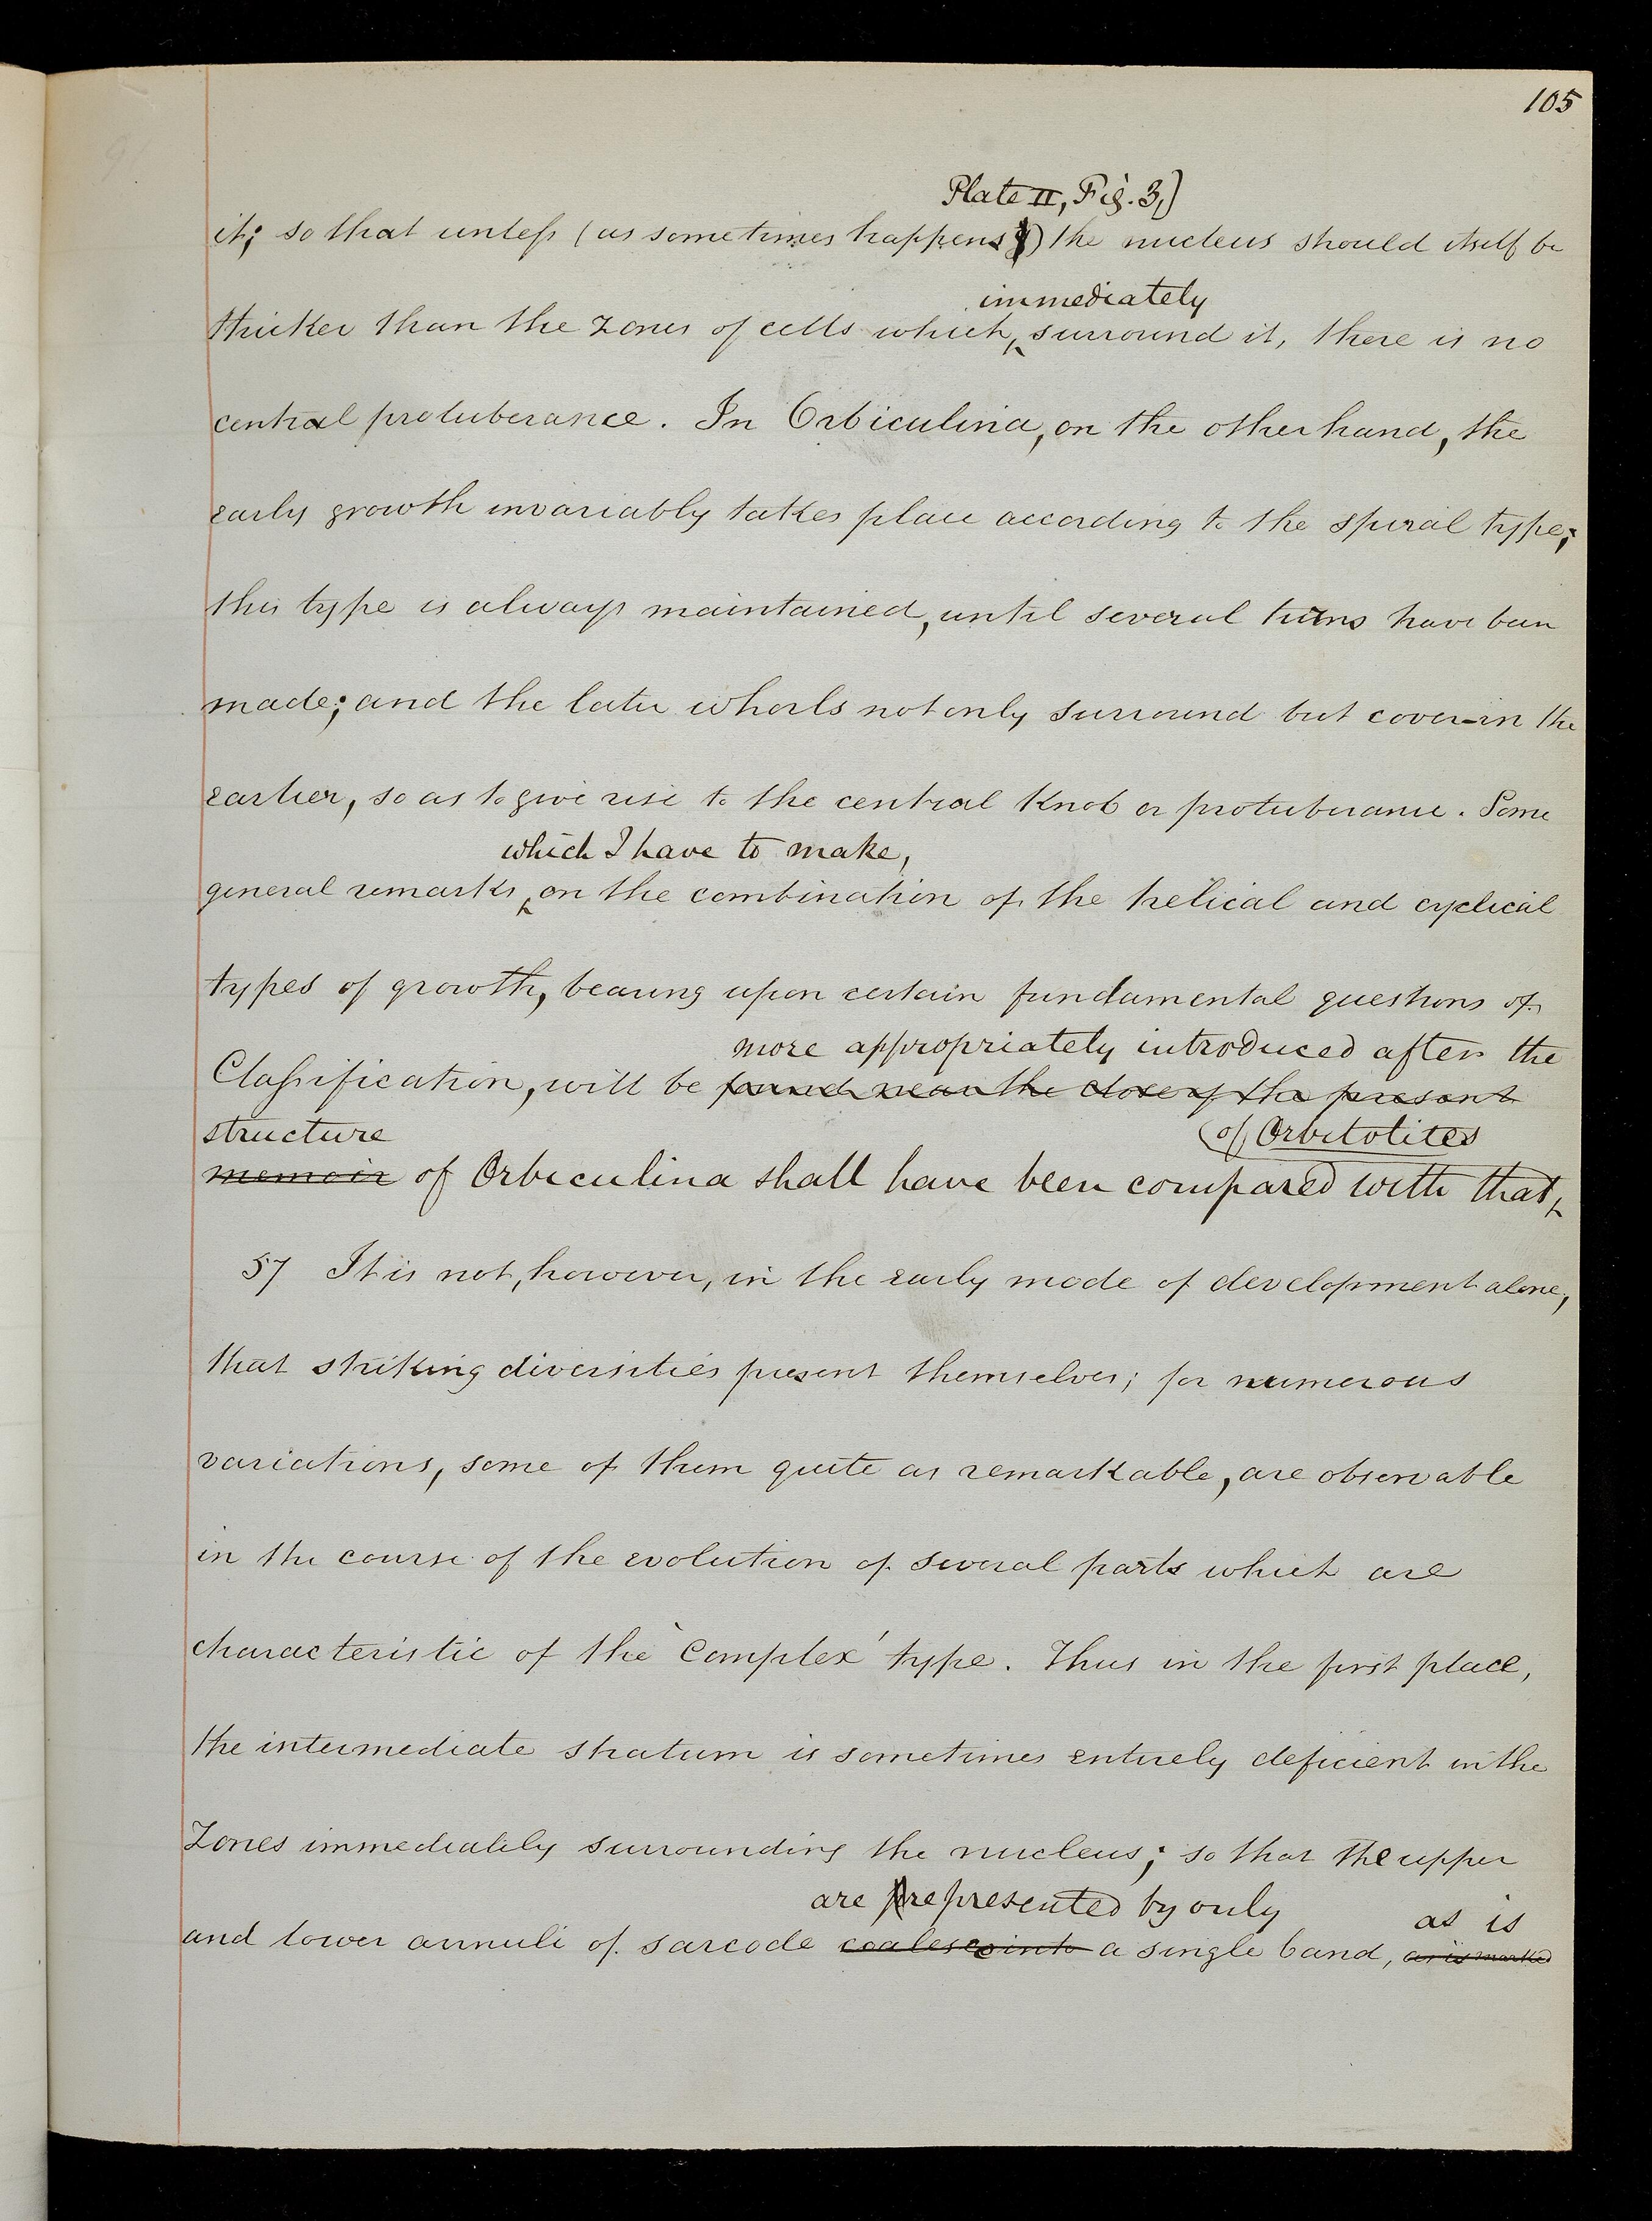 105
Plate II, Fig. 3,)
it; so that unless (as sometimes happens) the nucleus should itself be
immediately
thicker than the zones of cells which surround it, there is no
central protuberance. In Orbiculina, on the other hand, the
early growth invariably takes place according to the spiral type;
this type is always maintained, until several turns have been
made; and the later whorls not only surround but cover-in the
earlier, so as to give rise to the central knob or protuberance. Some
which I have to make,
general remarks, on the combination of the helical and cyclical
types of growth, bearing upon certain fundamental questions of
more appropriately introduced after the
Classification, will be found near the close of the present
structure
of Orbitolites
memoir of Orbiculina shall have been compared with that
57 It is not, however, in the early mode of development alone,
that striking diversities present themselves; for numerous
variations, some of them quite as remarkable, are observable
in the course of the evolution of several parts which are
characteristic of the 'complex' type. Thus in the first place,
the intermediate stratum is sometimes entirely deficient in the
Zones immediately surrounding the nucleus; so that the upper
are represented by only
as is
and lower annuli of sarcode coalesce into a single band, as is marked